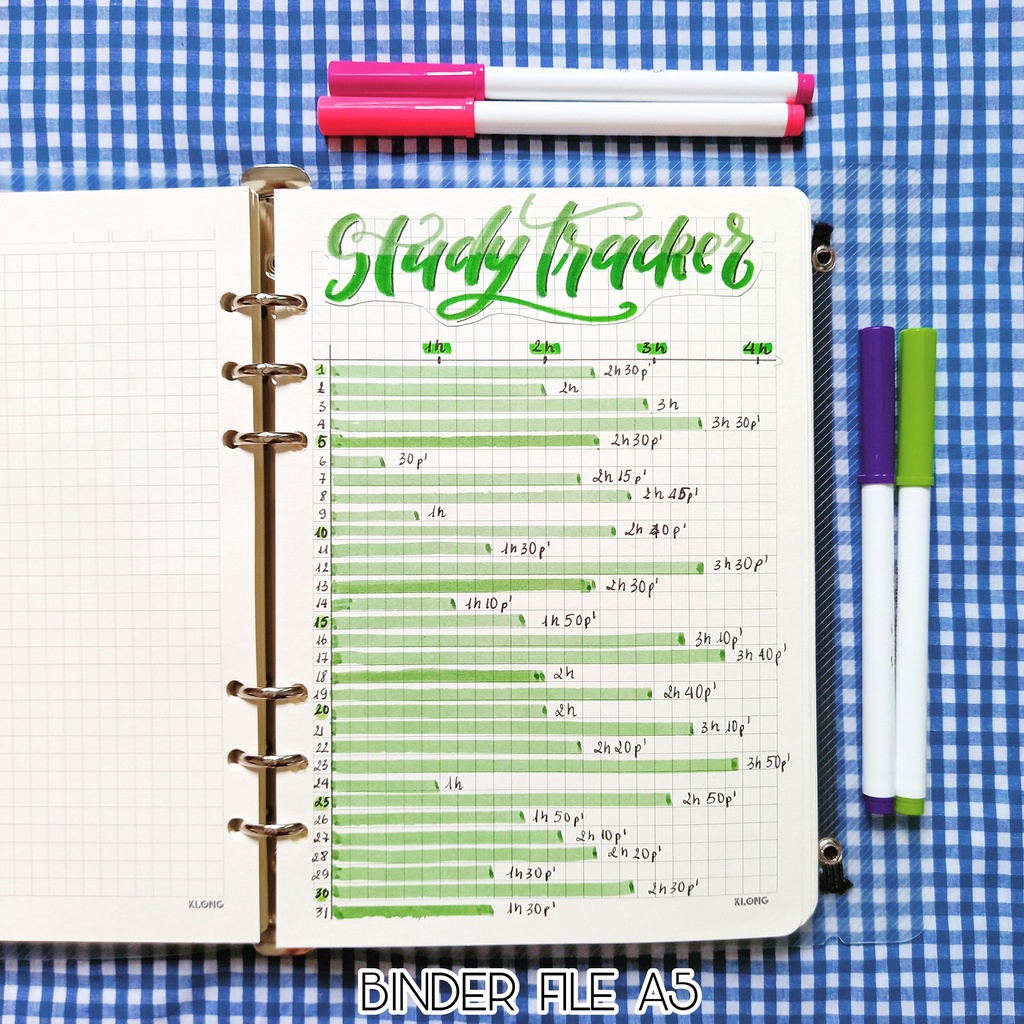 Study tracker
1h 2h 3h 4h
1 2h30p'
2 2h
3 3h
4 3h 30p'
5 2h30p'
6 30p'
7 2h 15p'
8 2h 45p'
9 1h
10 2h 40p'
11 1h30p'
12 3h30p'
13 2h 30p'
14 1h10p'
15 1h 50p'
16 3h 10p'
17 3h 40p'
18 2h
19 2h 40p'
20 2h
21 3h 10p'
22 2h20p'
23 3h50p'
24 1h
25 2h 50p'
26 1h50p'
27 2h 10p'
28 2h 20p'
29 1h 30p'
30 2h30p'
31 1h 30p'
KLONG KLONG
BINDER FILE A5